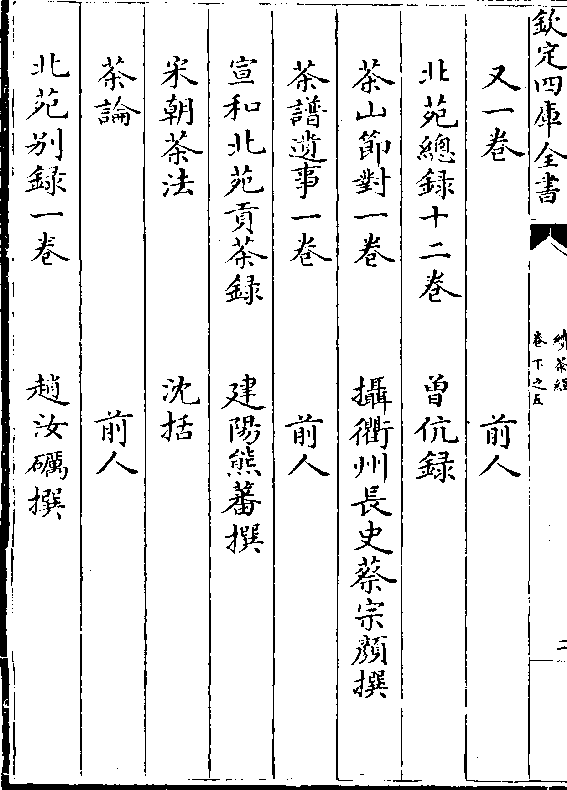 欽定四庫全書
續茶經
卷下之五
二
又一卷 前人
北苑總録十二卷 曽伉録
茶山節對一卷 攝衢州長史蔡宗顔撰
茶譜遺事一卷 前人
宣和北苑貢茶録 建陽熊蕃撰
宋朝茶法 沈括
茶論 前人
北苑别録一卷 趙汝礪撰